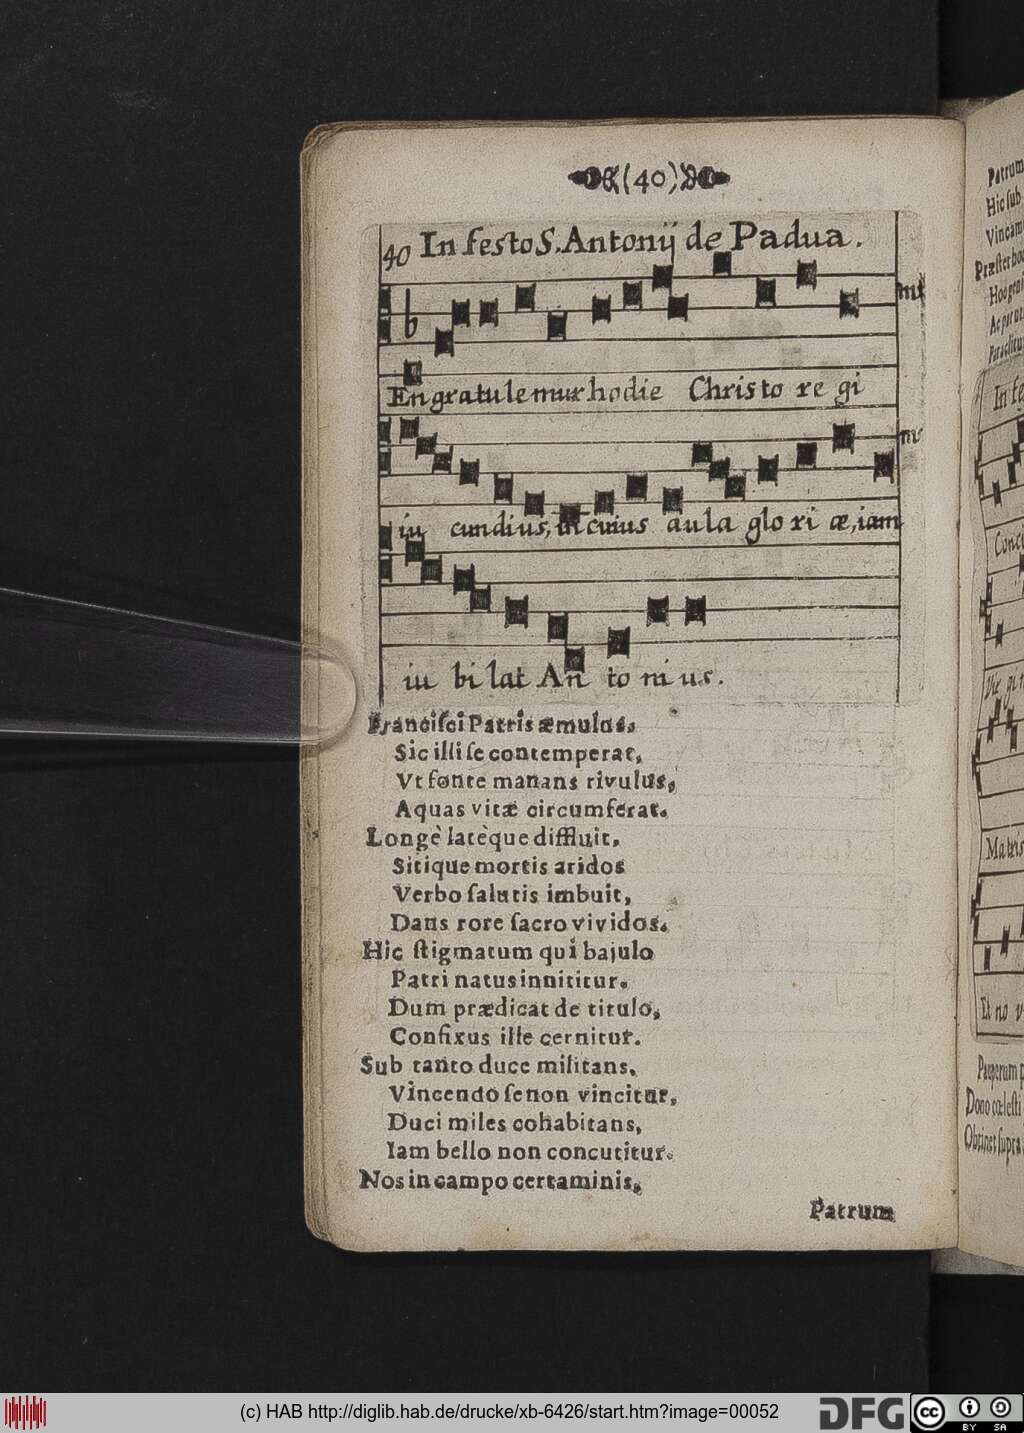 (40)
40 In festo S. Antonij de Padua.
En gratulemur hodie Christo re gi
iu cundius, in cuius aula glo ri æ, iam
iu bi lat An to ni us.
Franciſci Patris æmulus,
Sic illi ſe contemperat,
Vt fonte manans rivulus,
Aquas vitæ circumferat.
Longè latèque diffluit,
Sitique mortis aridos
Verbo ſalutis imbuit,
Dans rore ſacro vividos.
Hic ſtigmatum qui bajulo
Patri natus innititur.
Dum prædicat de titulo,
Confixus ille cernitur.
Sub tanto duce militans,
Vincendo ſe non vincitur,
Duci miles cohabitans,
Iam bello non concutitur.
Nos in campo certaminis,
Patrum
Patrum
Hic ſub
Vincam
Præſter hoc
In fe
Matris
Et no v
Pauperum p
Dono cœleſti
Obtinet ſupra
(c) HAB http://diglib.hab.de/drucke/xb-6426/start.htm?image=00052
DFG
cc BY SA